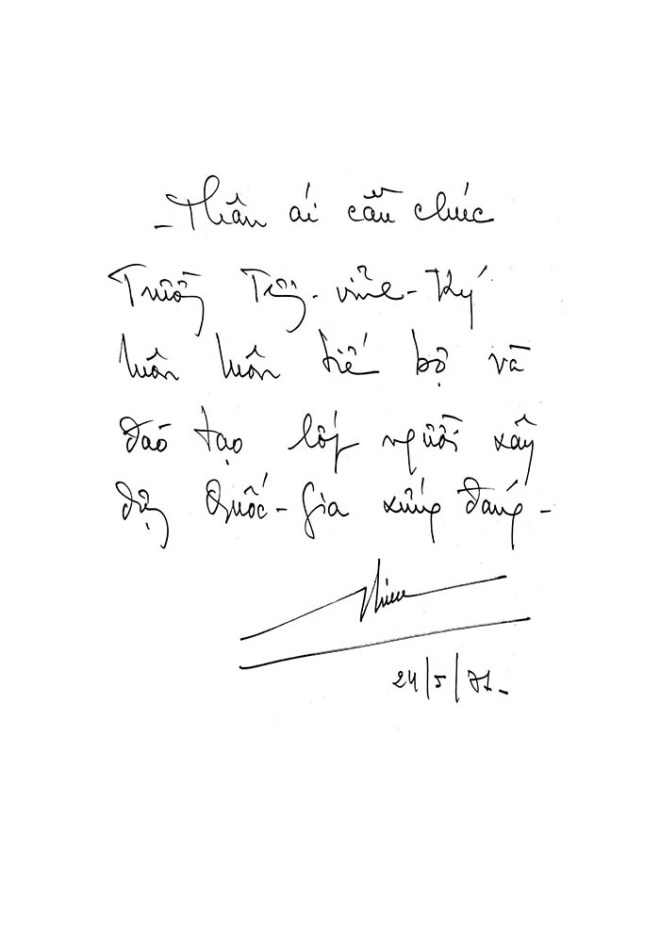 - Thân ái cầu chúc
Trường Trg-vĩnh-Ký
luôn luôn tiến bộ và
đào tạo lớp người xây
dựng Quốc-Gia xứng đáng -
24/5/71-